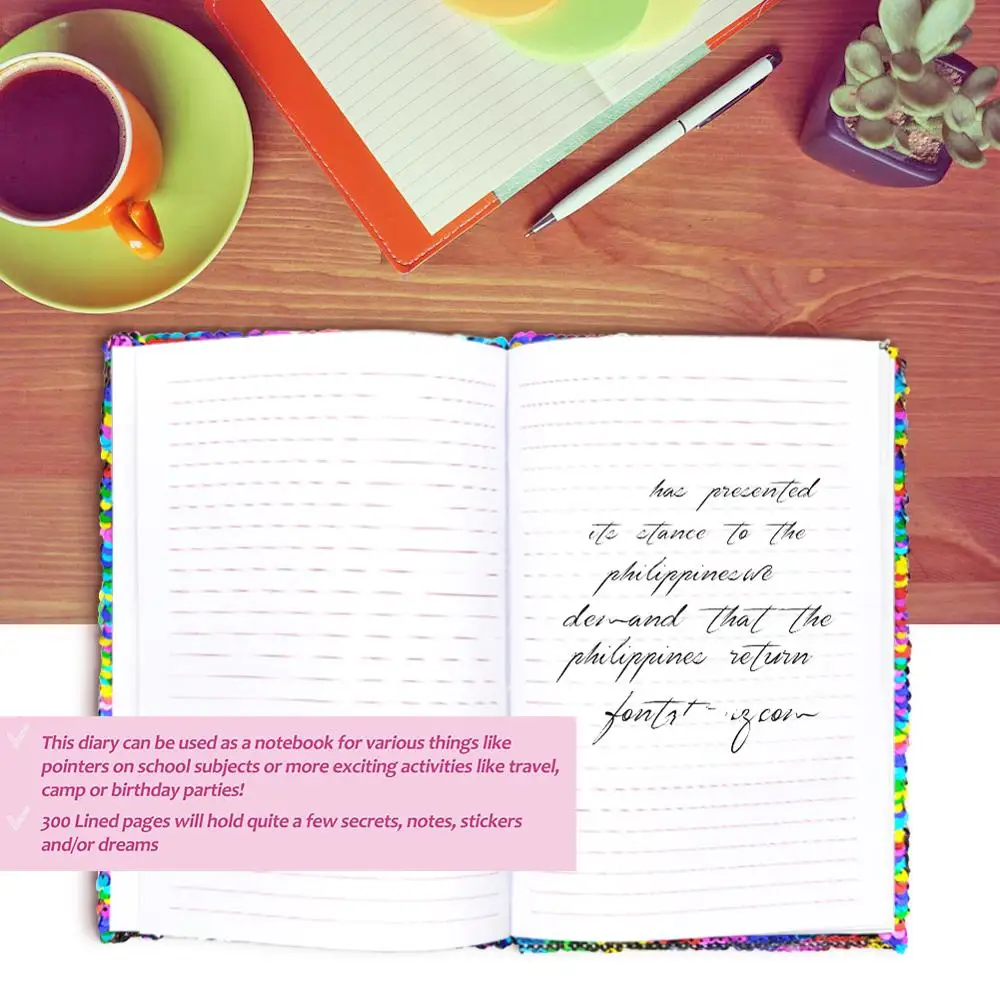 has presented
its stance to the
philippineswe
demand that the
philippines return
This diary can be used as a notebook for various things like
pointers on school subjects or more exciting activities like travel,
camp or birthday parties!
300 Lined pages will hold quite a few secrets, notes, stickers
and/or dreams